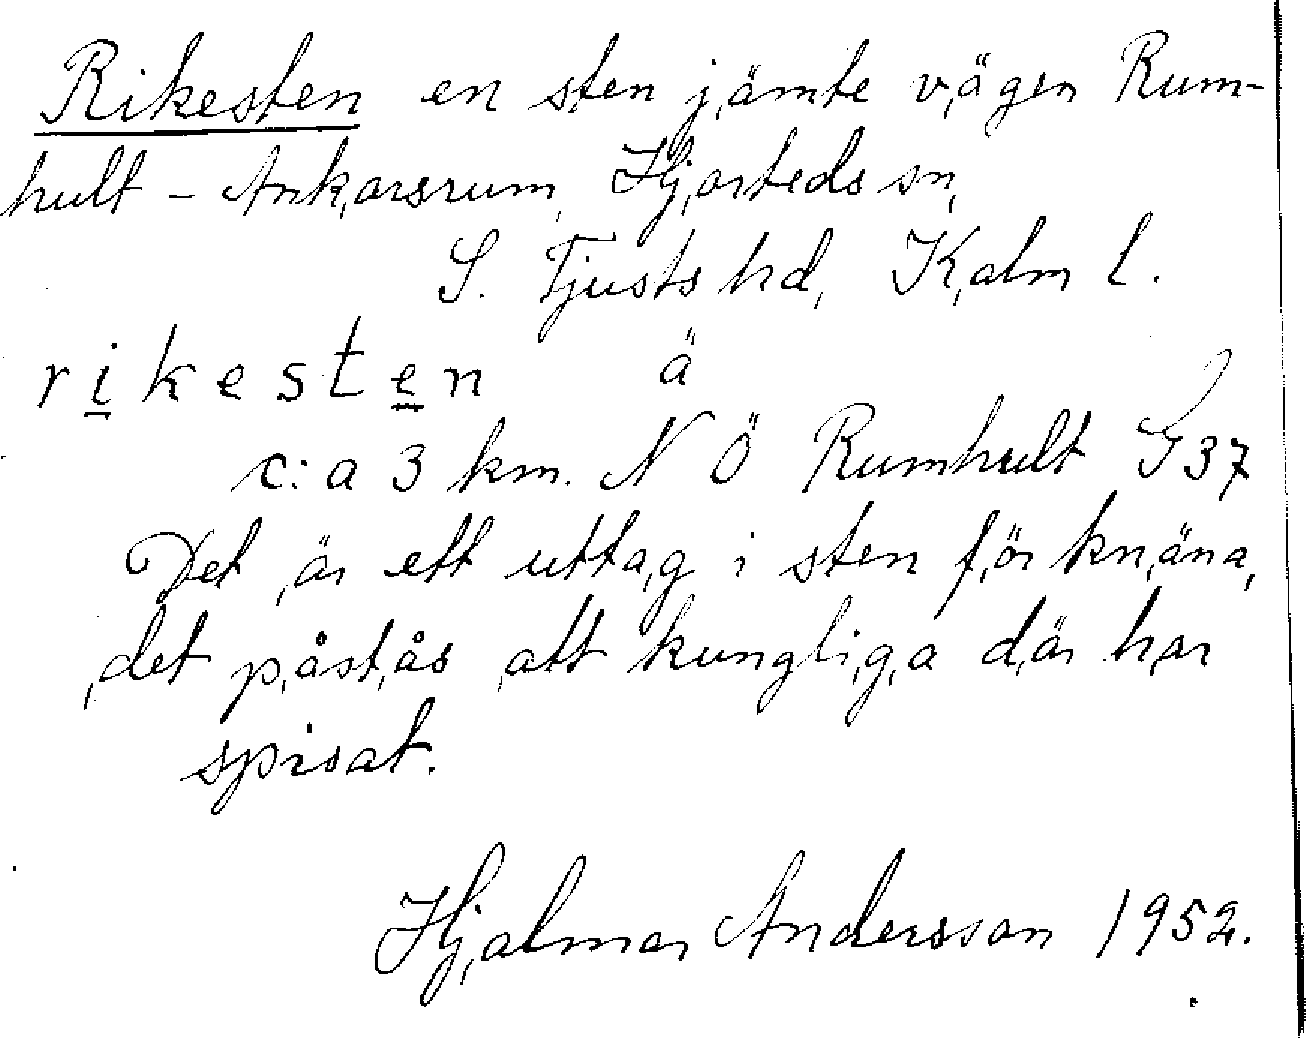 Rikesten en sten jämte vägen Rum-
hult - Ankarsrum, Hjorteds sn,
S. Tjusts hd, Kalm l.
rikesten ä
c:a 3 km. N Ö Rumhult G37
Det är ett uttag i sten för knäna,
det påstås att kungliga där har
spisat.
Hjalmar Andersson 1952.